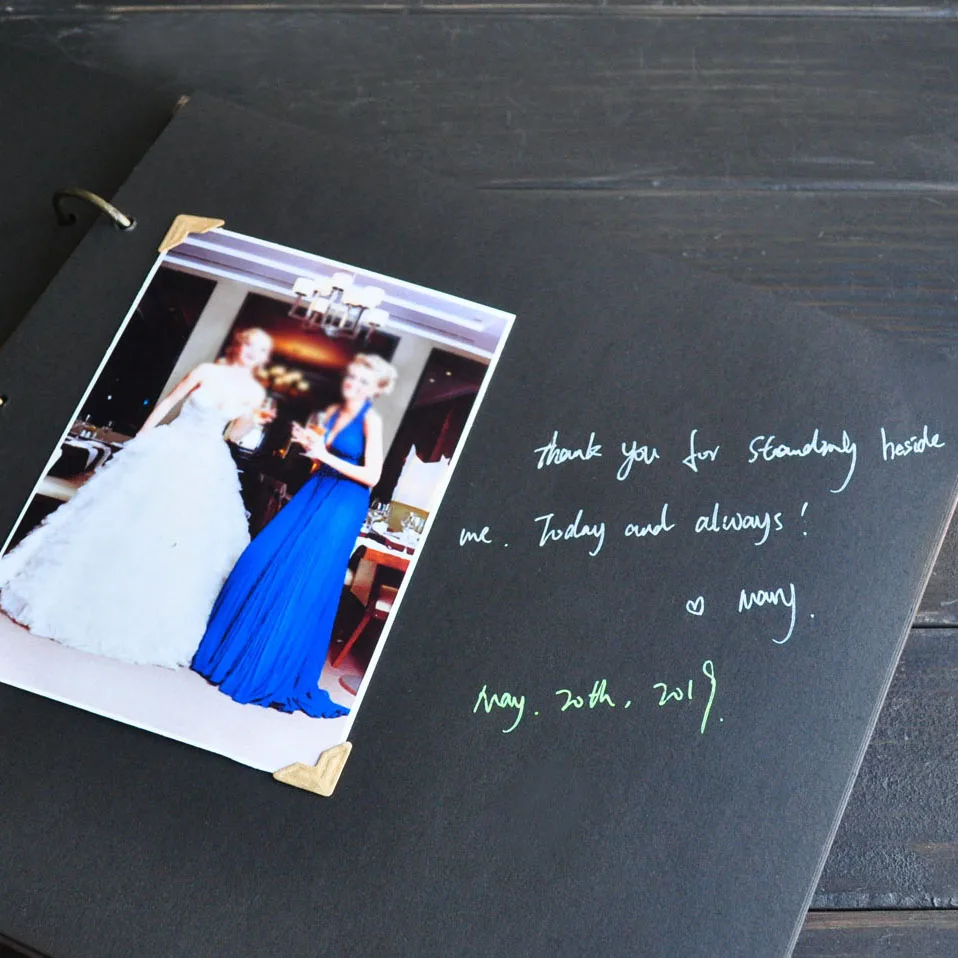 thank you for standing beside
me. Today and always!
♡ Mary.
May. 20th, 2019.